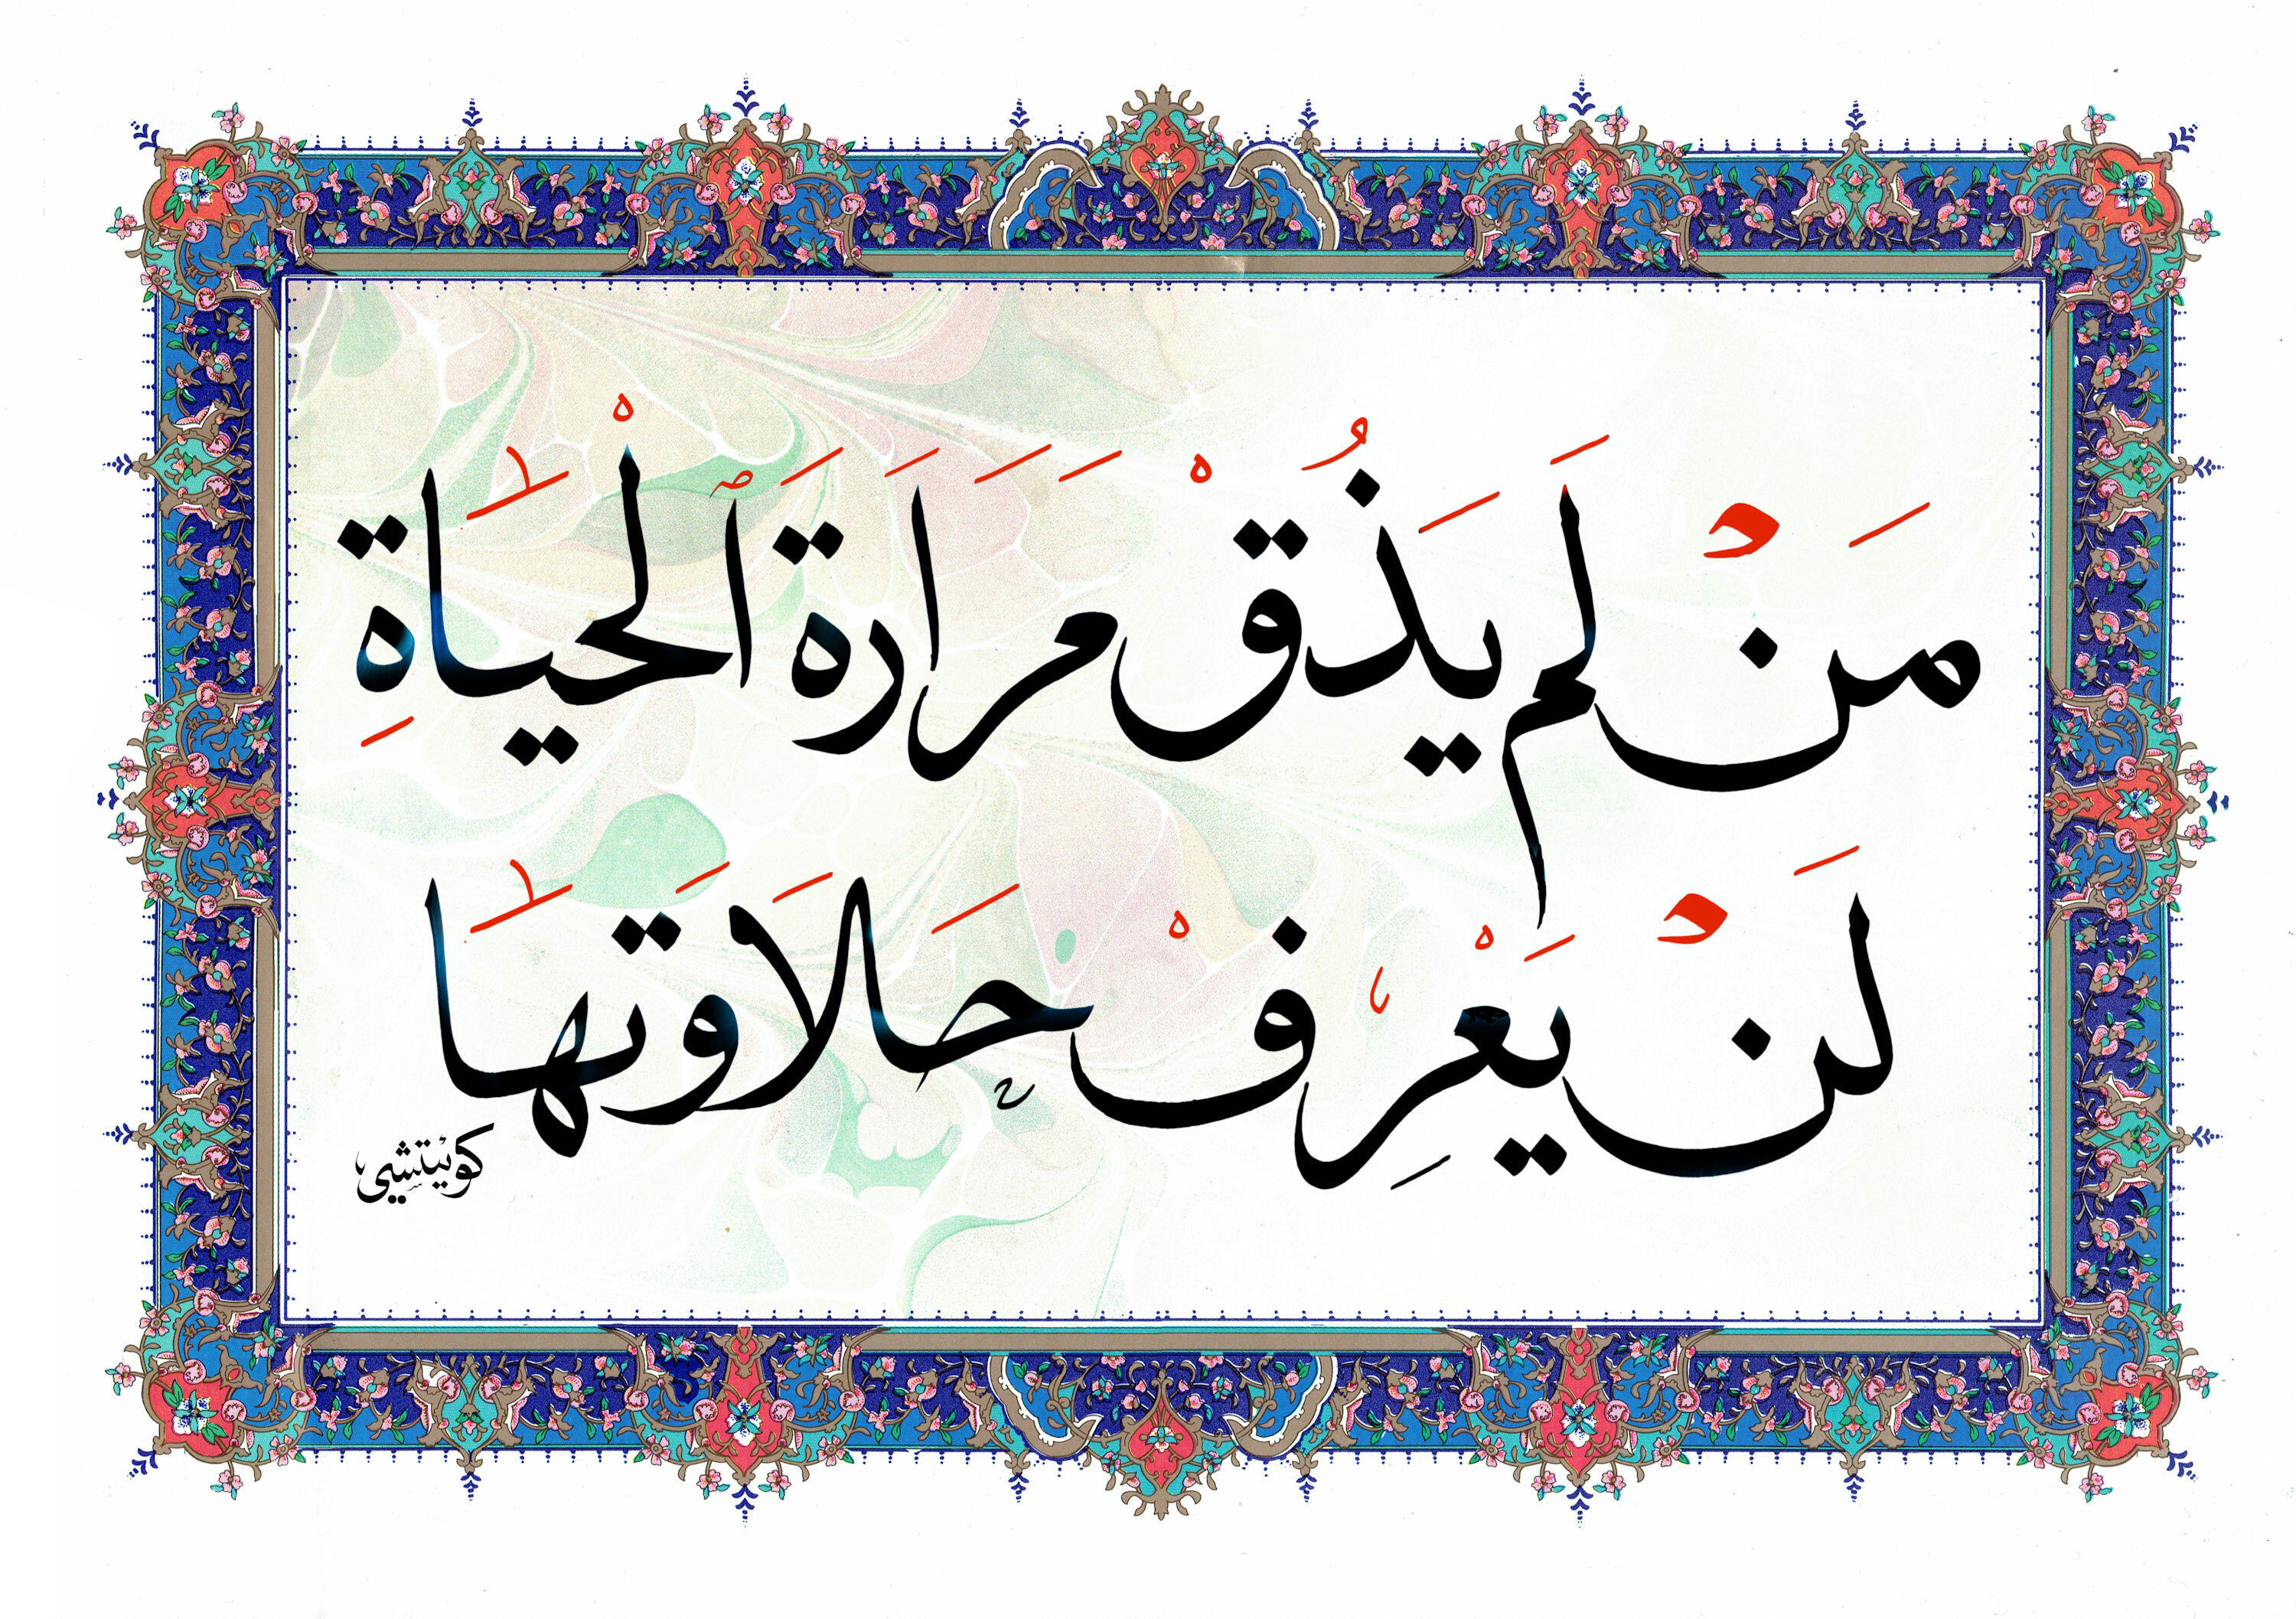 مَنْ لَم يَذُقْ مَرَارَةَ ٱلْحَيَاةِ
لَنْ يَعْرِفْ حَلَاوَتَهَا
كويتشي